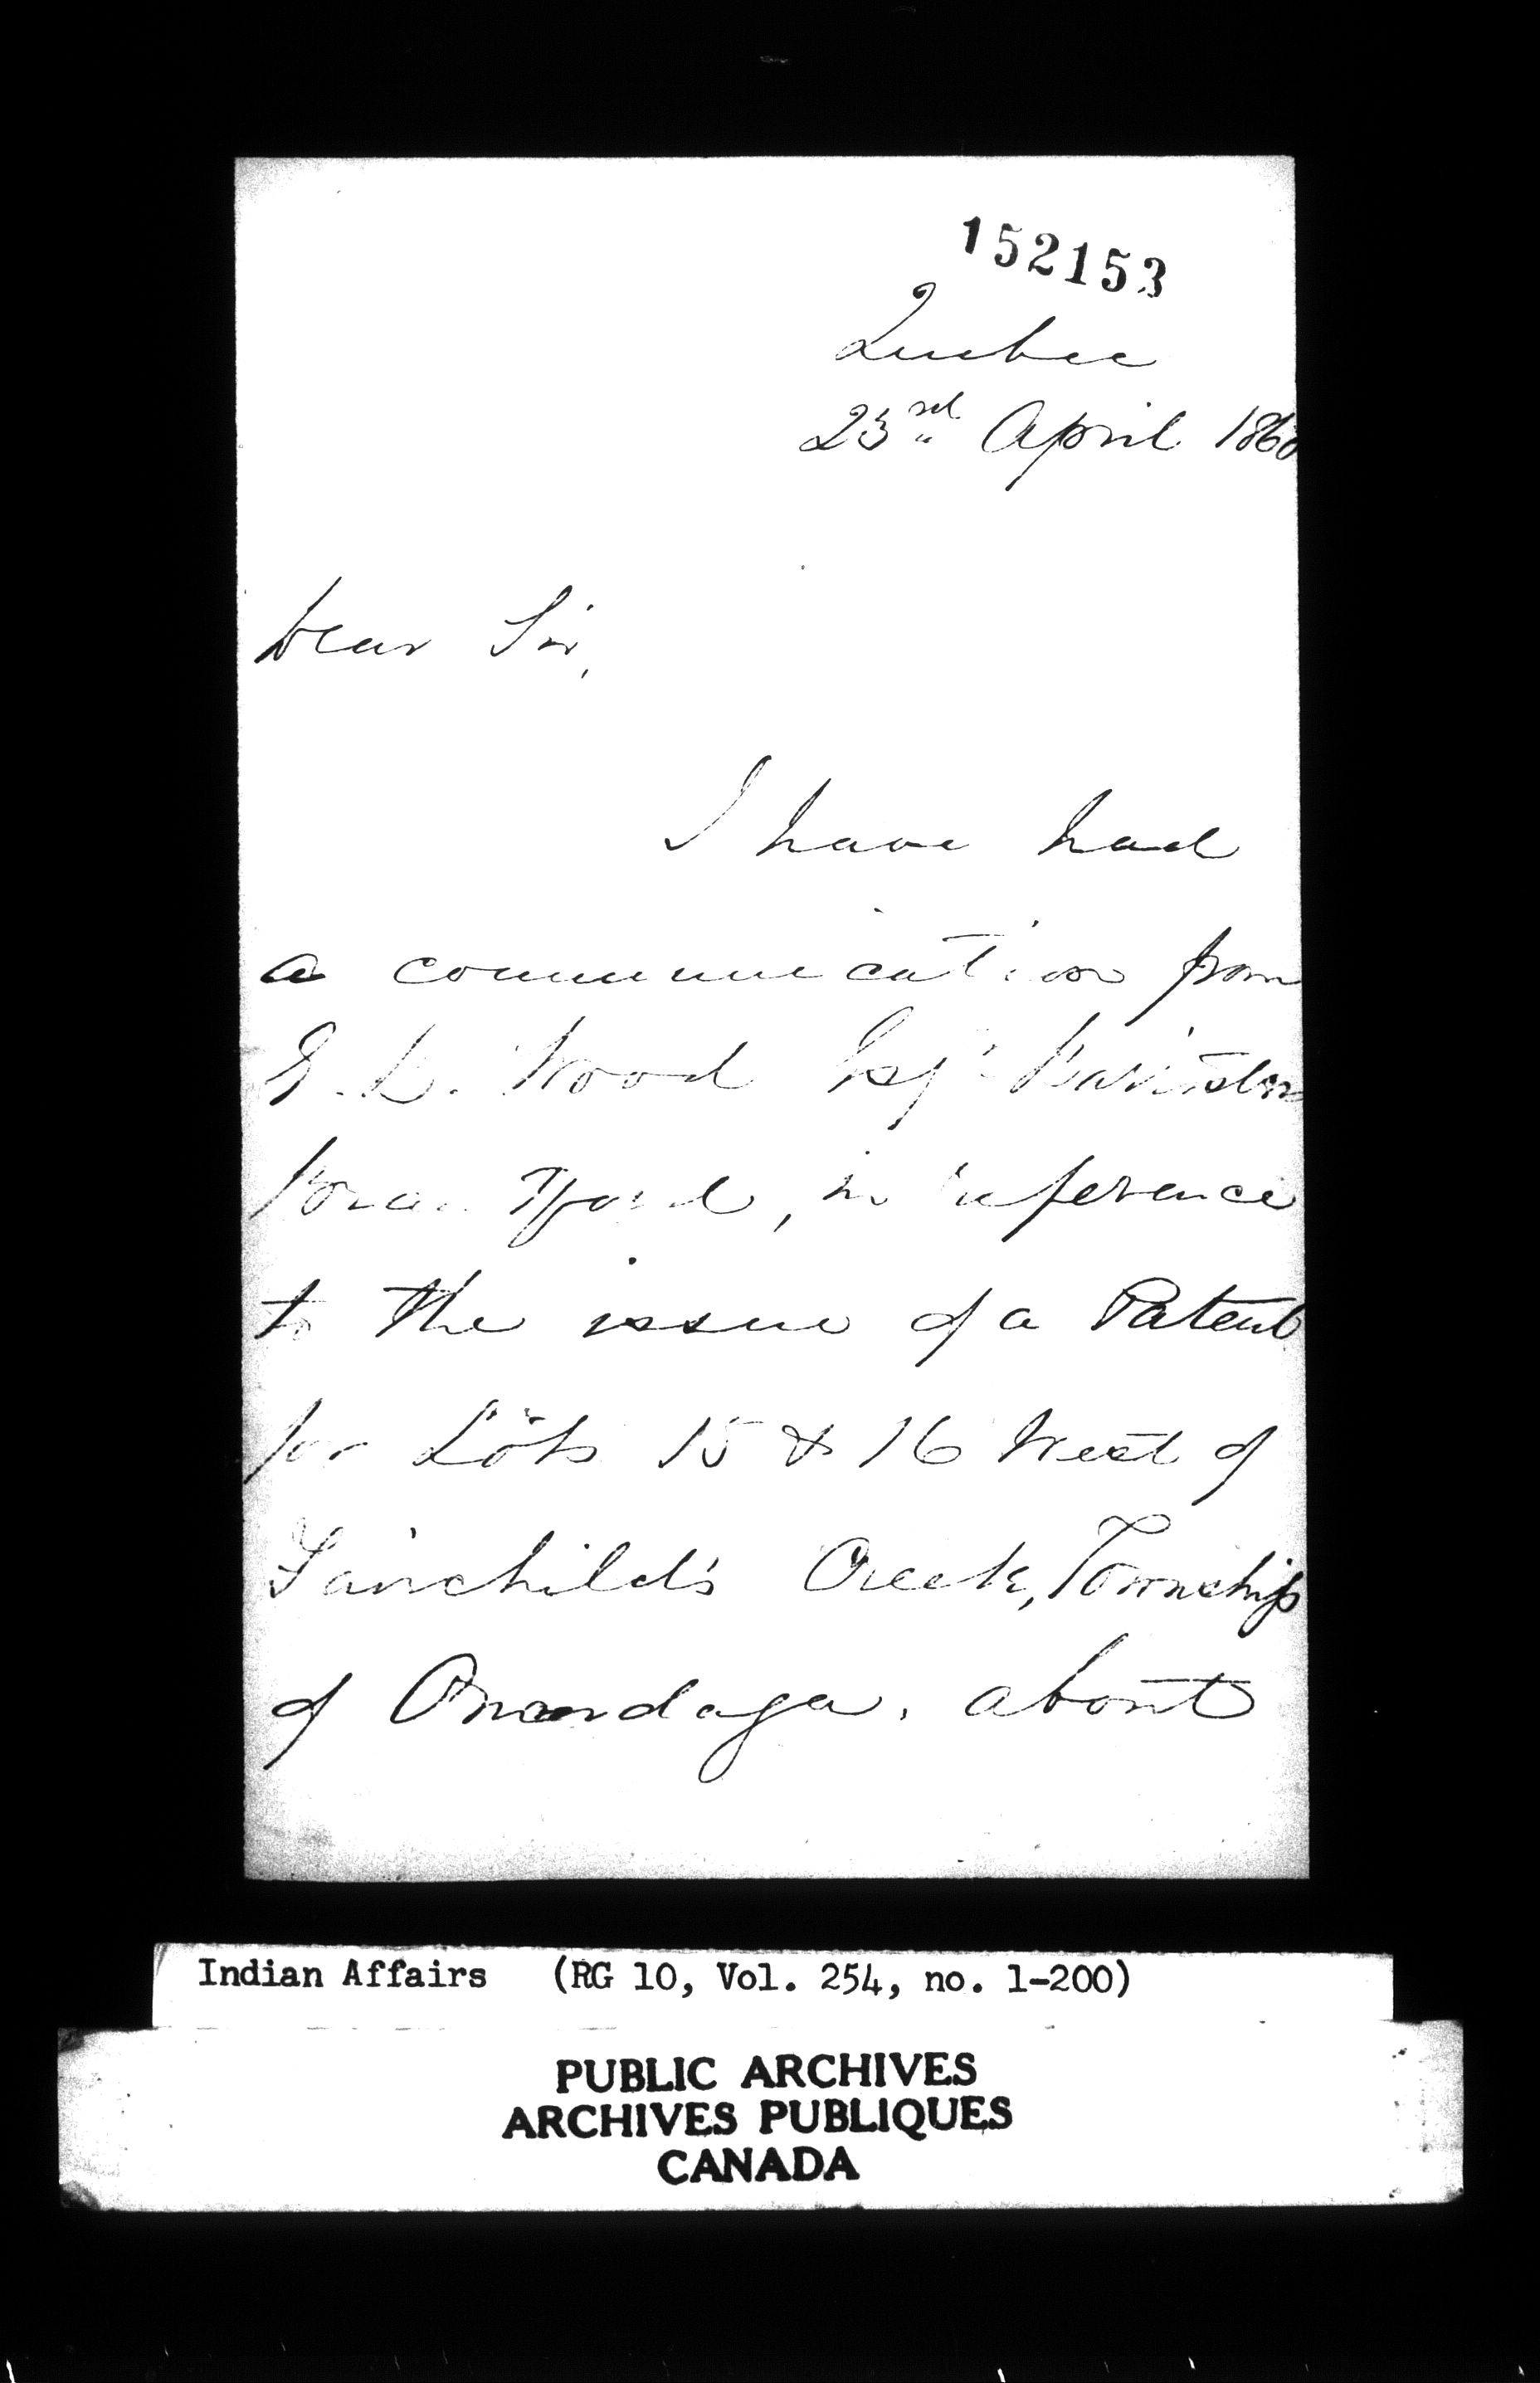 152153
Quebec
23rd April 1860
Dear Sir,
I have had
a communication from
Wood Esqr Barrister
Brantford, in reference
to the issue of a Patent
for Lots 15 & 16 West of
Fairchild's Creek, Township
of Onondaga. about
Indian Affairs (RG 10, Vol. 254, no. 1-200)
PUBLIC ARCHIVES
ARCHIVES PUBLIQUES
CANADA